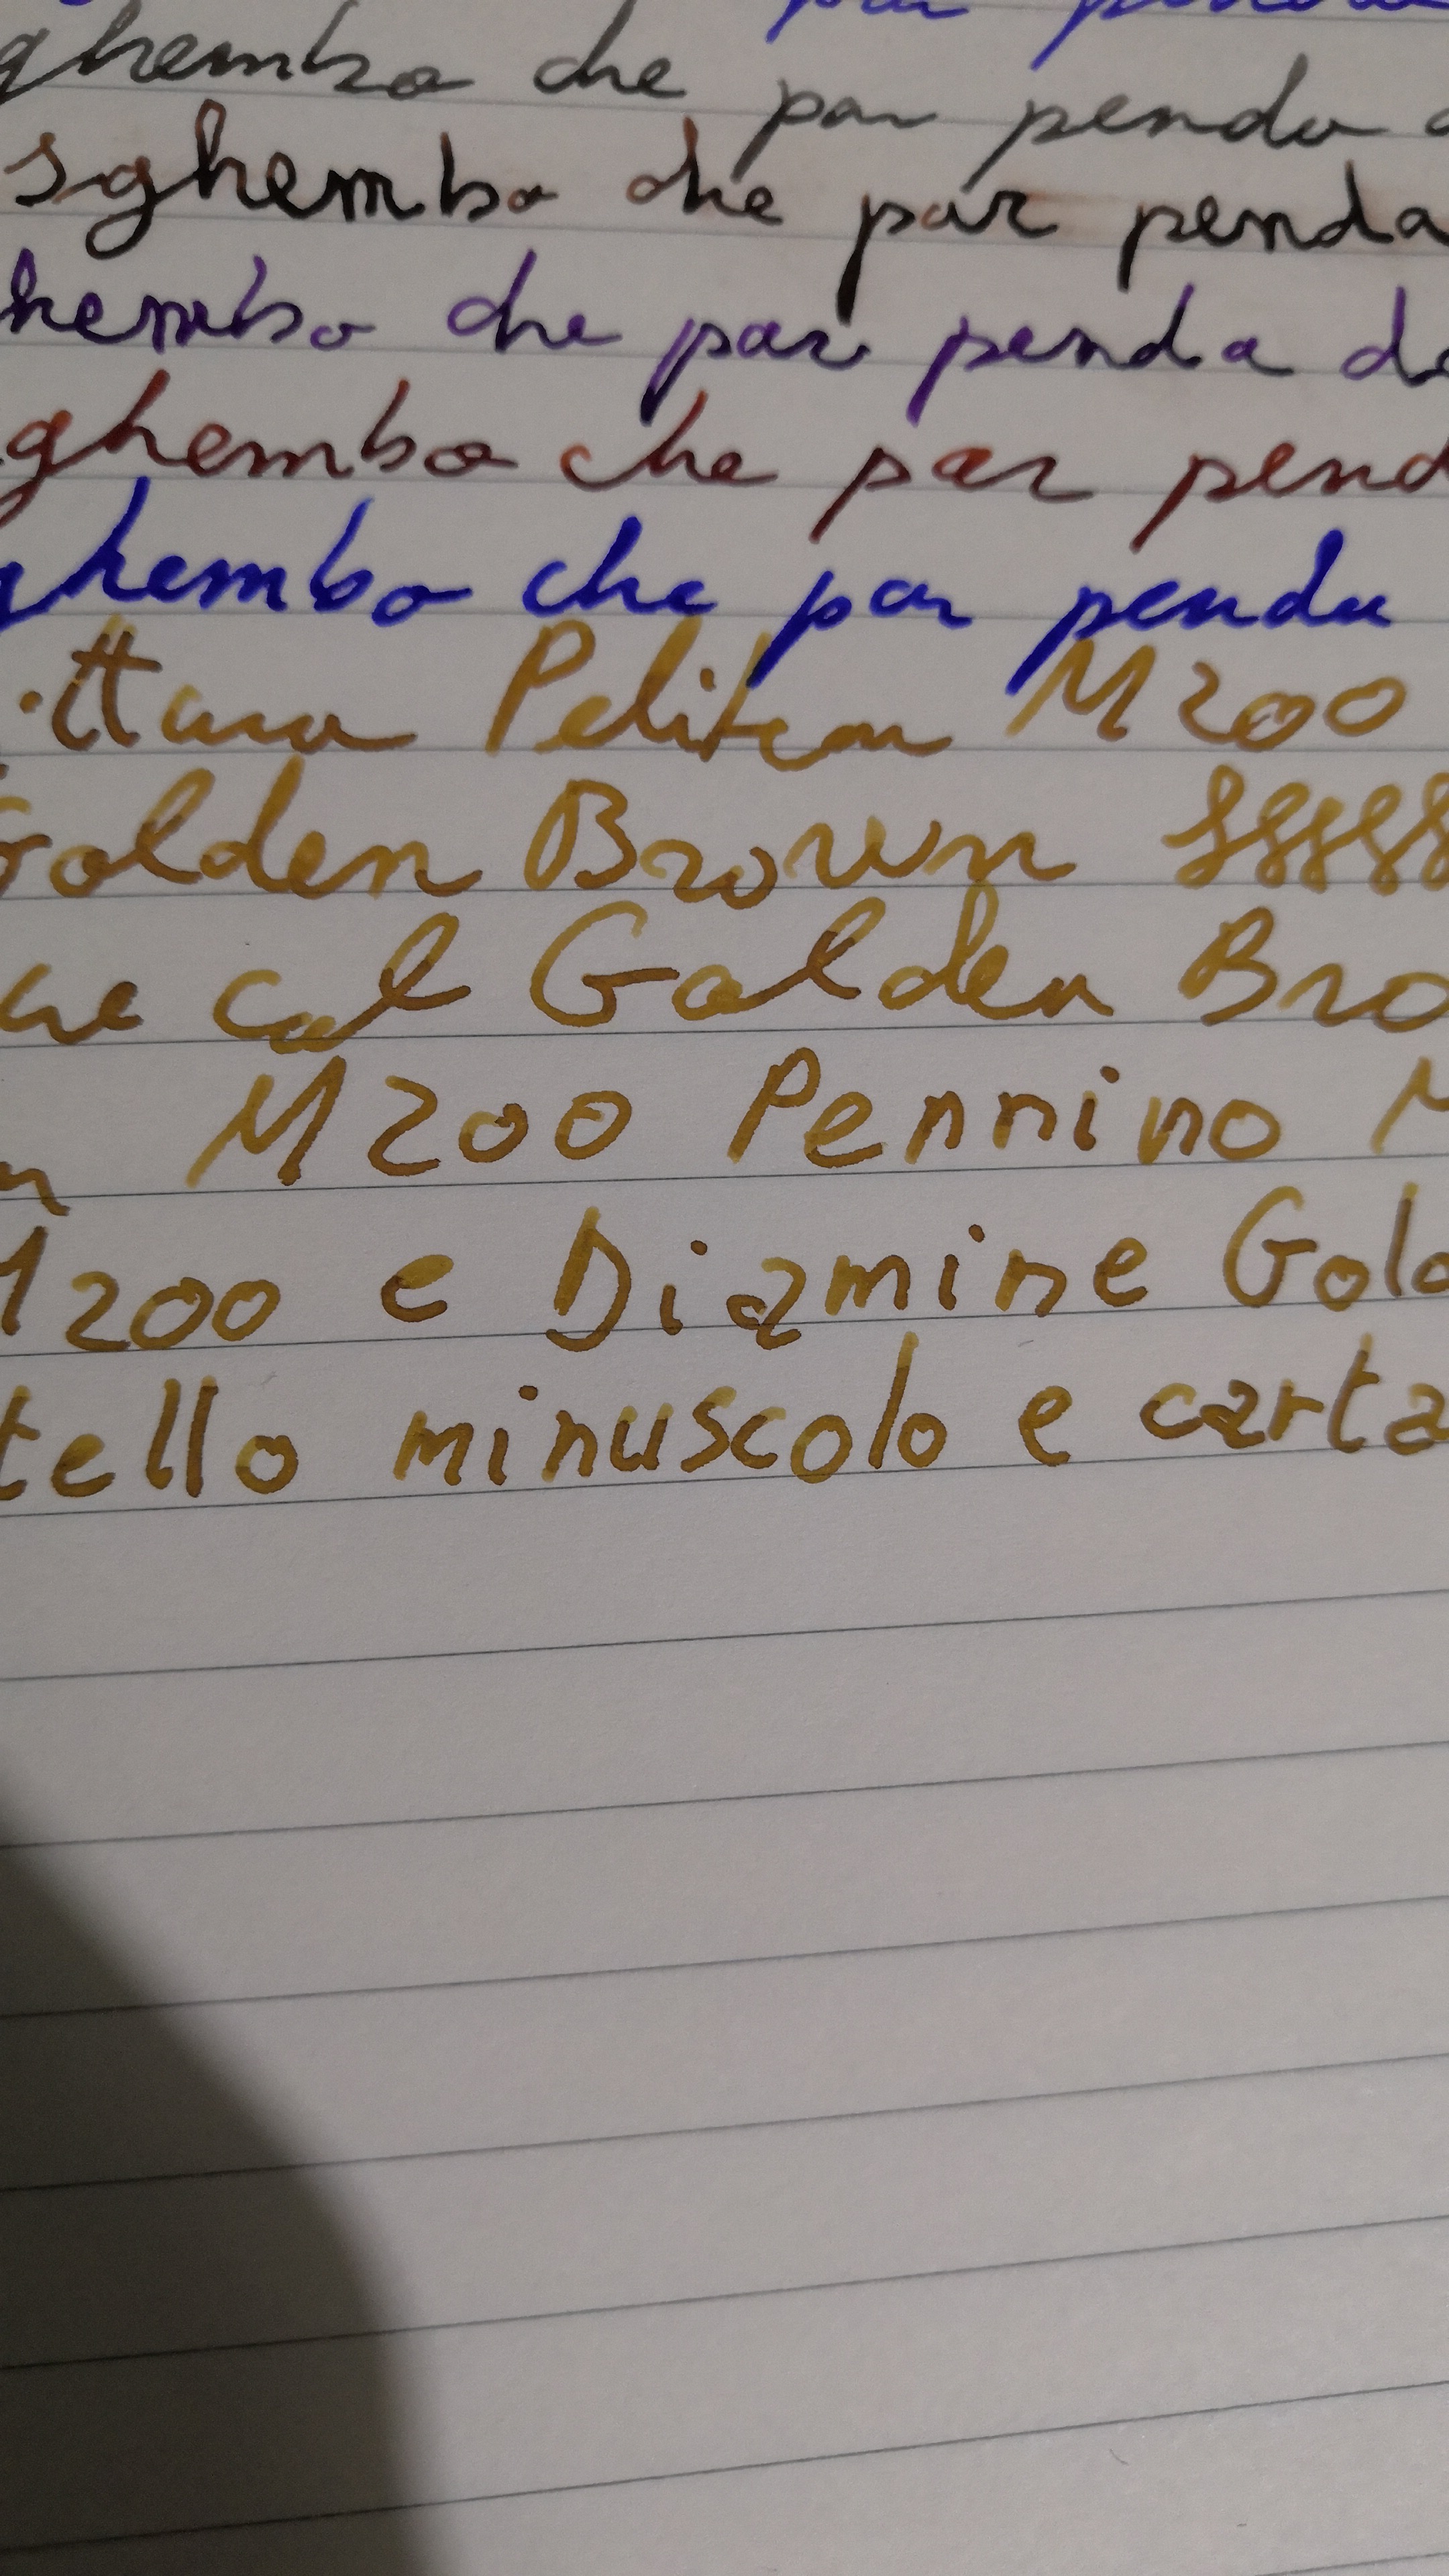 par penda
ghembo che par penda
sghembo che par penda
hembo che par penda da
ghembo che par pend
ghembo che par penda
ittura Pelikan M200
Golden Brown
col Golden Bro
M200 Pennino M
M200 e Diamine Gold
tello minuscolo e carta